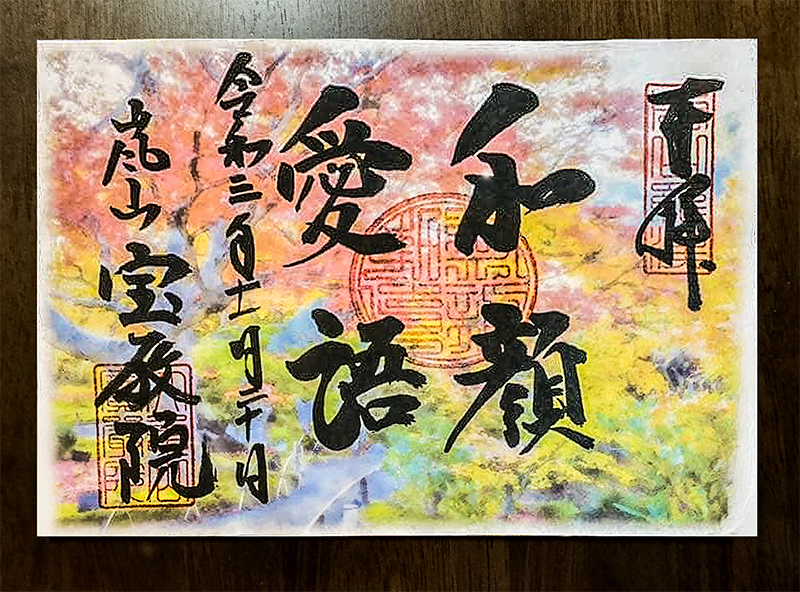 奉拝
和顔
愛語
令和三年十一月二十日
嵐山 宝厳院